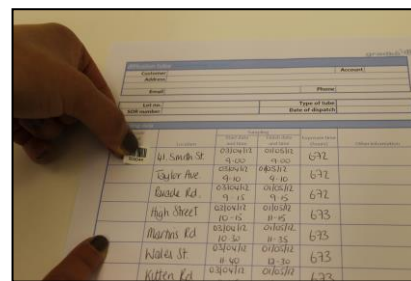 gradko
Diffusion tubes
Customer Account
Address
Email Phone
Lot no. Type of tube
SOR number Date of dispatch
Location Start date and time Finish date and time Exposure time (hours) Other information
41. Smith St. 03/04/12 9-00 01/05/12 9-00 672
Taylor Ave. 03/04/12 9-10 01/05/12 9-10 672
Rd. 03/04/12 9-15 01/05/12 9-15 672
High Street 03/04/12 10-15 01/05/12 11-15 673
Martins Rd 03/04/12 10-30 01/05/12 11-35 673
Wales St. 03/04/12 11-40 01/05/12 12-30 673
Kitten Rd 03/04/12 01/05/12 673